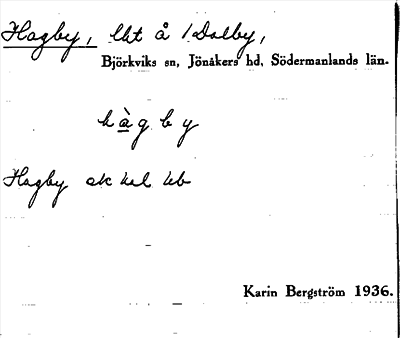 Hagby, lht å /Dalby,
Björkviks sn, Jönåkers hd, Södermanlands län.
hàgby
Hagby ek hsl hb
Karin Bergström 1936.